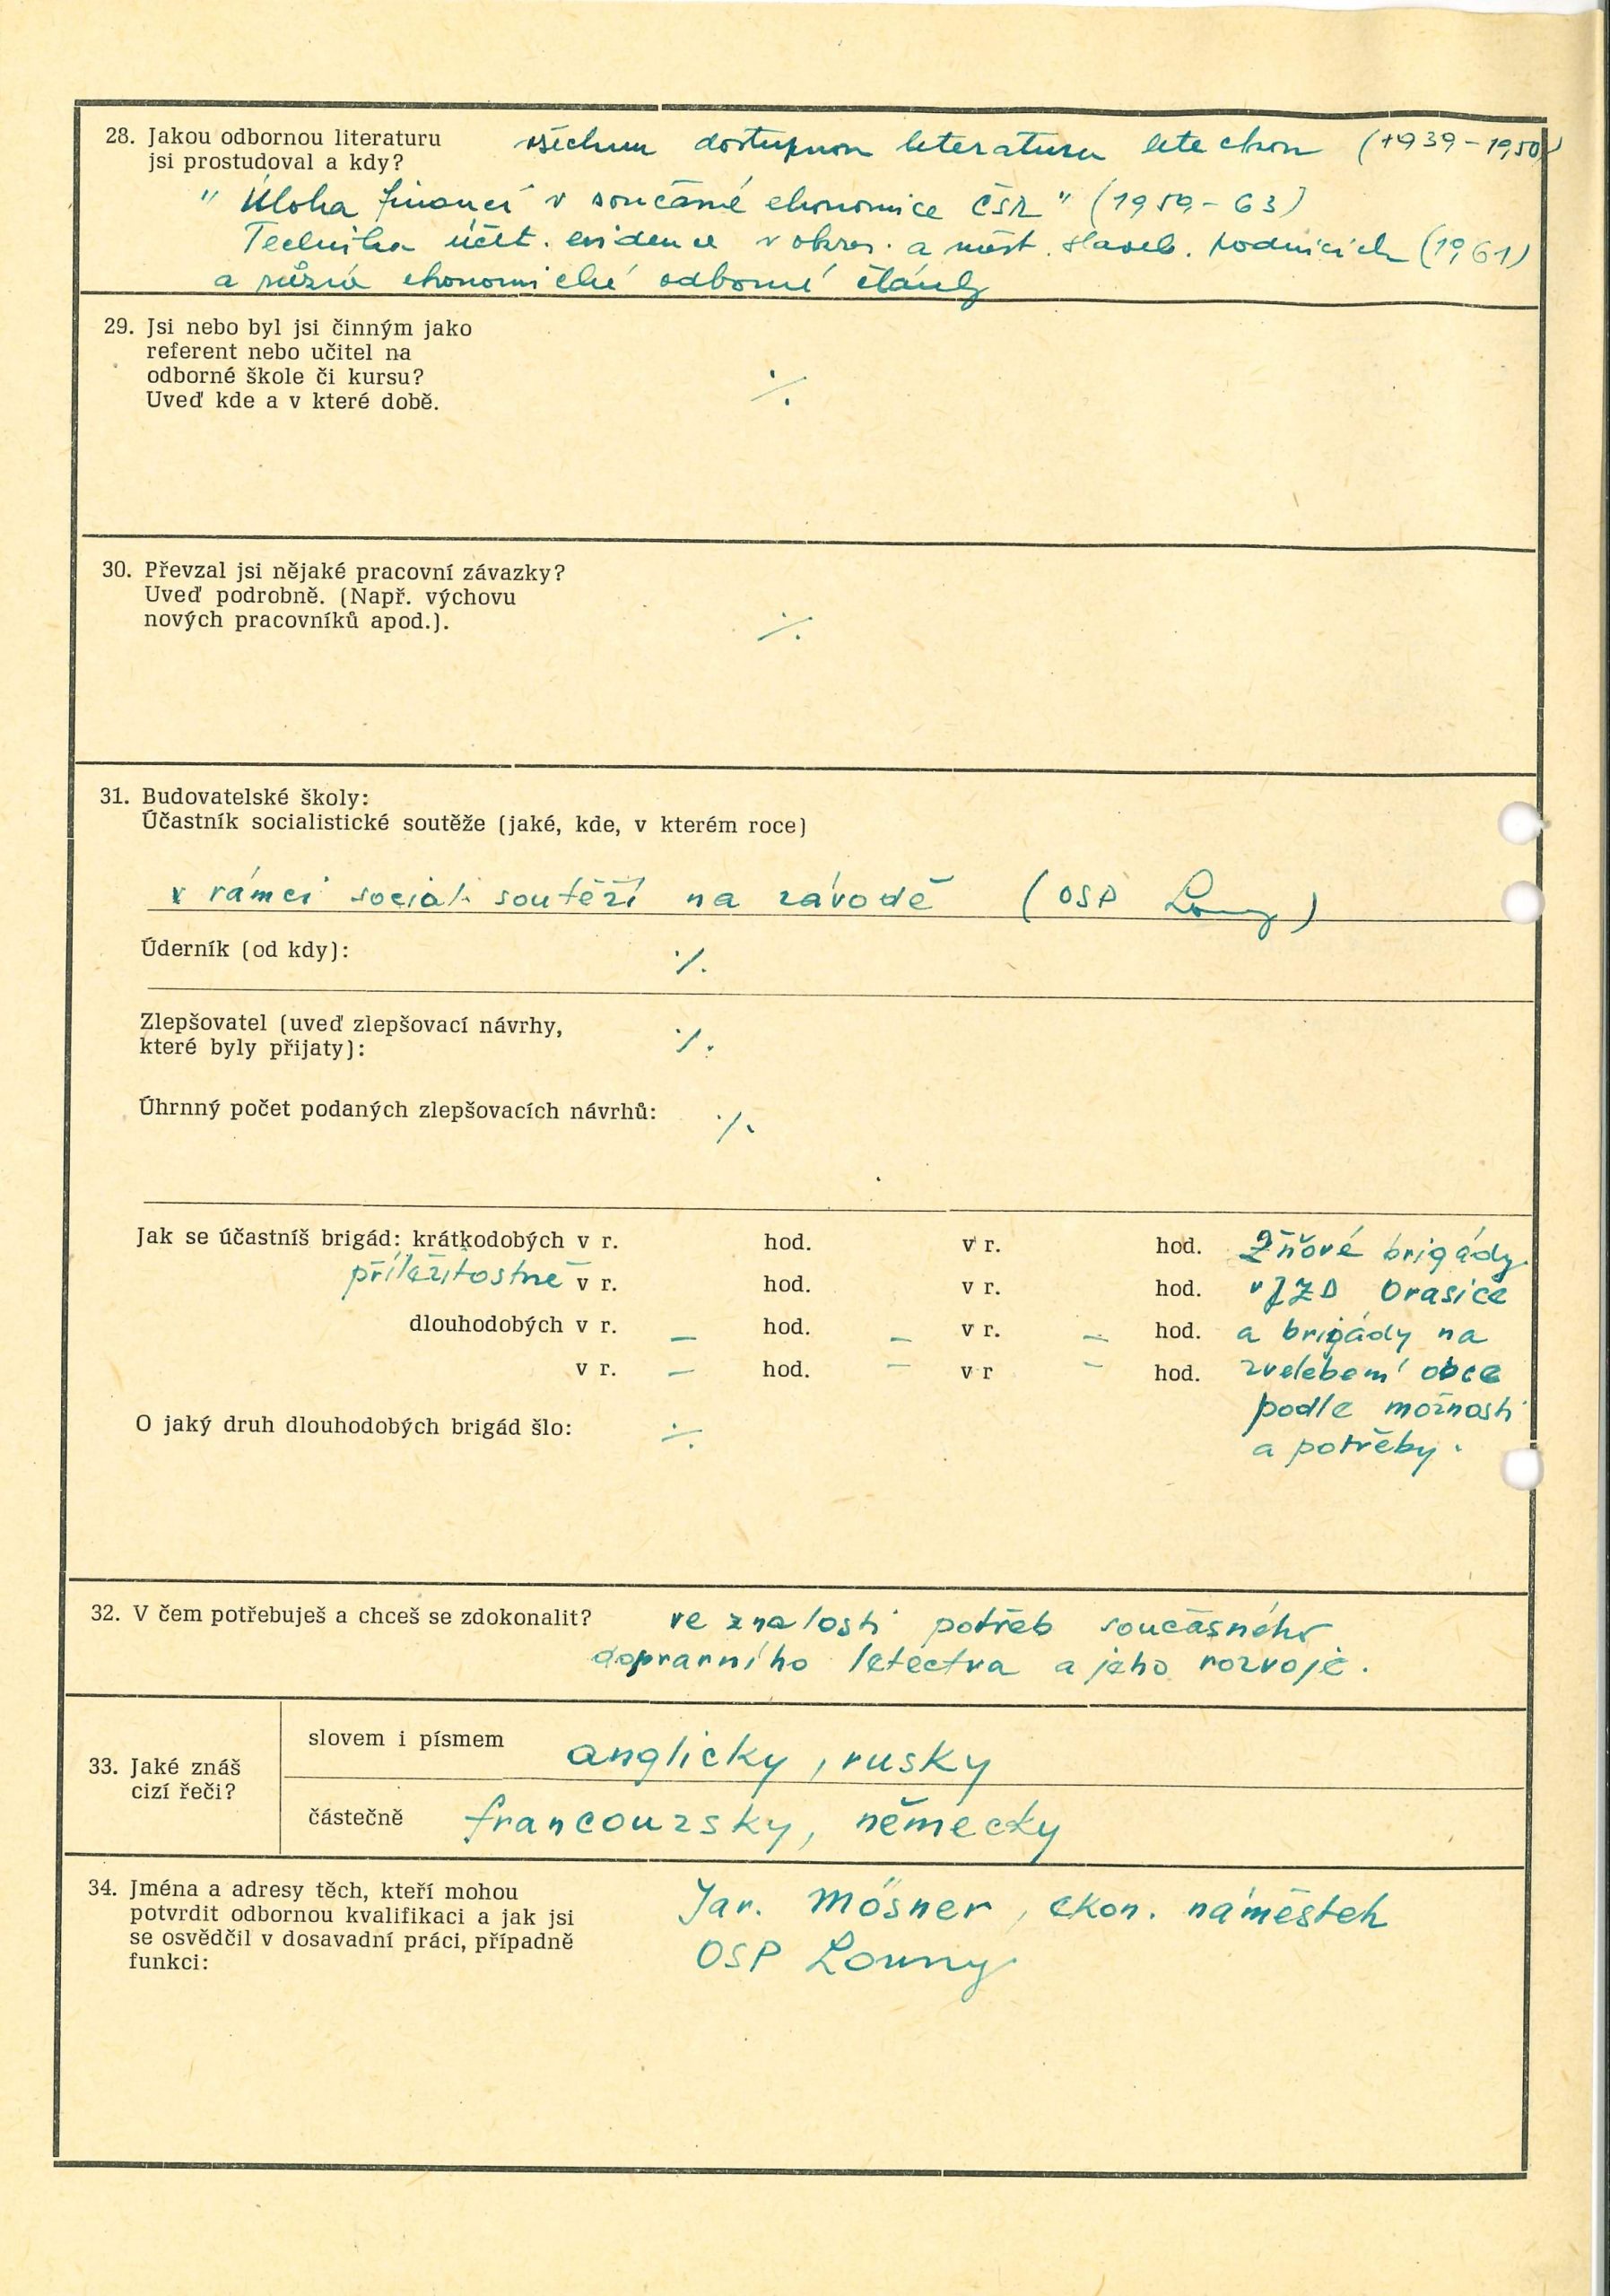 28. Jakou odbornou literaturu
jsi prostudoval a kdy?
všechnu dostupnou literaturu leteckou (1939-1950)
"Úloha financí v současné ekonomice ČSR" (1959-63)
Technika účet. evidence v okres. a měst. staveb. podnicích (1961)
a různé ekonomické odborné články
29. Jsi nebo byl jsi činným jako
referent nebo učitel na
odborné škole či kursu?
Uveď kde a v které době.
./.
30. Převzal jsi nějaké pracovní závazky?
Uveď podrobně. (Např. výchovu
nových pracovníků apod.).
./.
31. Budovatelské školy:
Účastník socialistické soutěže (jaké, kde, v kterém roce)
v rámci social. soutěží na závodě (OSP Louny)
Úderník (od kdy): ./.
Zlepšovatel (uveď zlepšovací návrhy,
které byly přijaty): ./.
Úhrnný počet podaných zlepšovacích návrhů: ./.
Jak se účastníš brigád: krátkodobých v r. hod. v r. hod. Žňové brigády
příležitostně v r. hod. v r. hod. v JZD Orasice
dlouhodobých v r. – hod. – v r. – hod. a brigády na
v r. – hod. – v r – hod. zvelebení obce
podle možnosti
O jaký druh dlouhodobých brigád šlo: ./.
a potřeby.
32. V čem potřebuješ a chceš se zdokonalit? ve znalosti potřeb současného
dopravního letectva a jeho rozvoje.
33. Jaké znáš
cizí řeči?
slovem i písmem anglicky, rusky
částečně francouzsky, německy
34. Jména a adresy těch, kteří mohou
potvrdit odbornou kvalifikaci a jak jsi
se osvědčil v dosavadní práci, případně
funkci:
Jar. Mösner, ekon. náměstek
OSP Louny